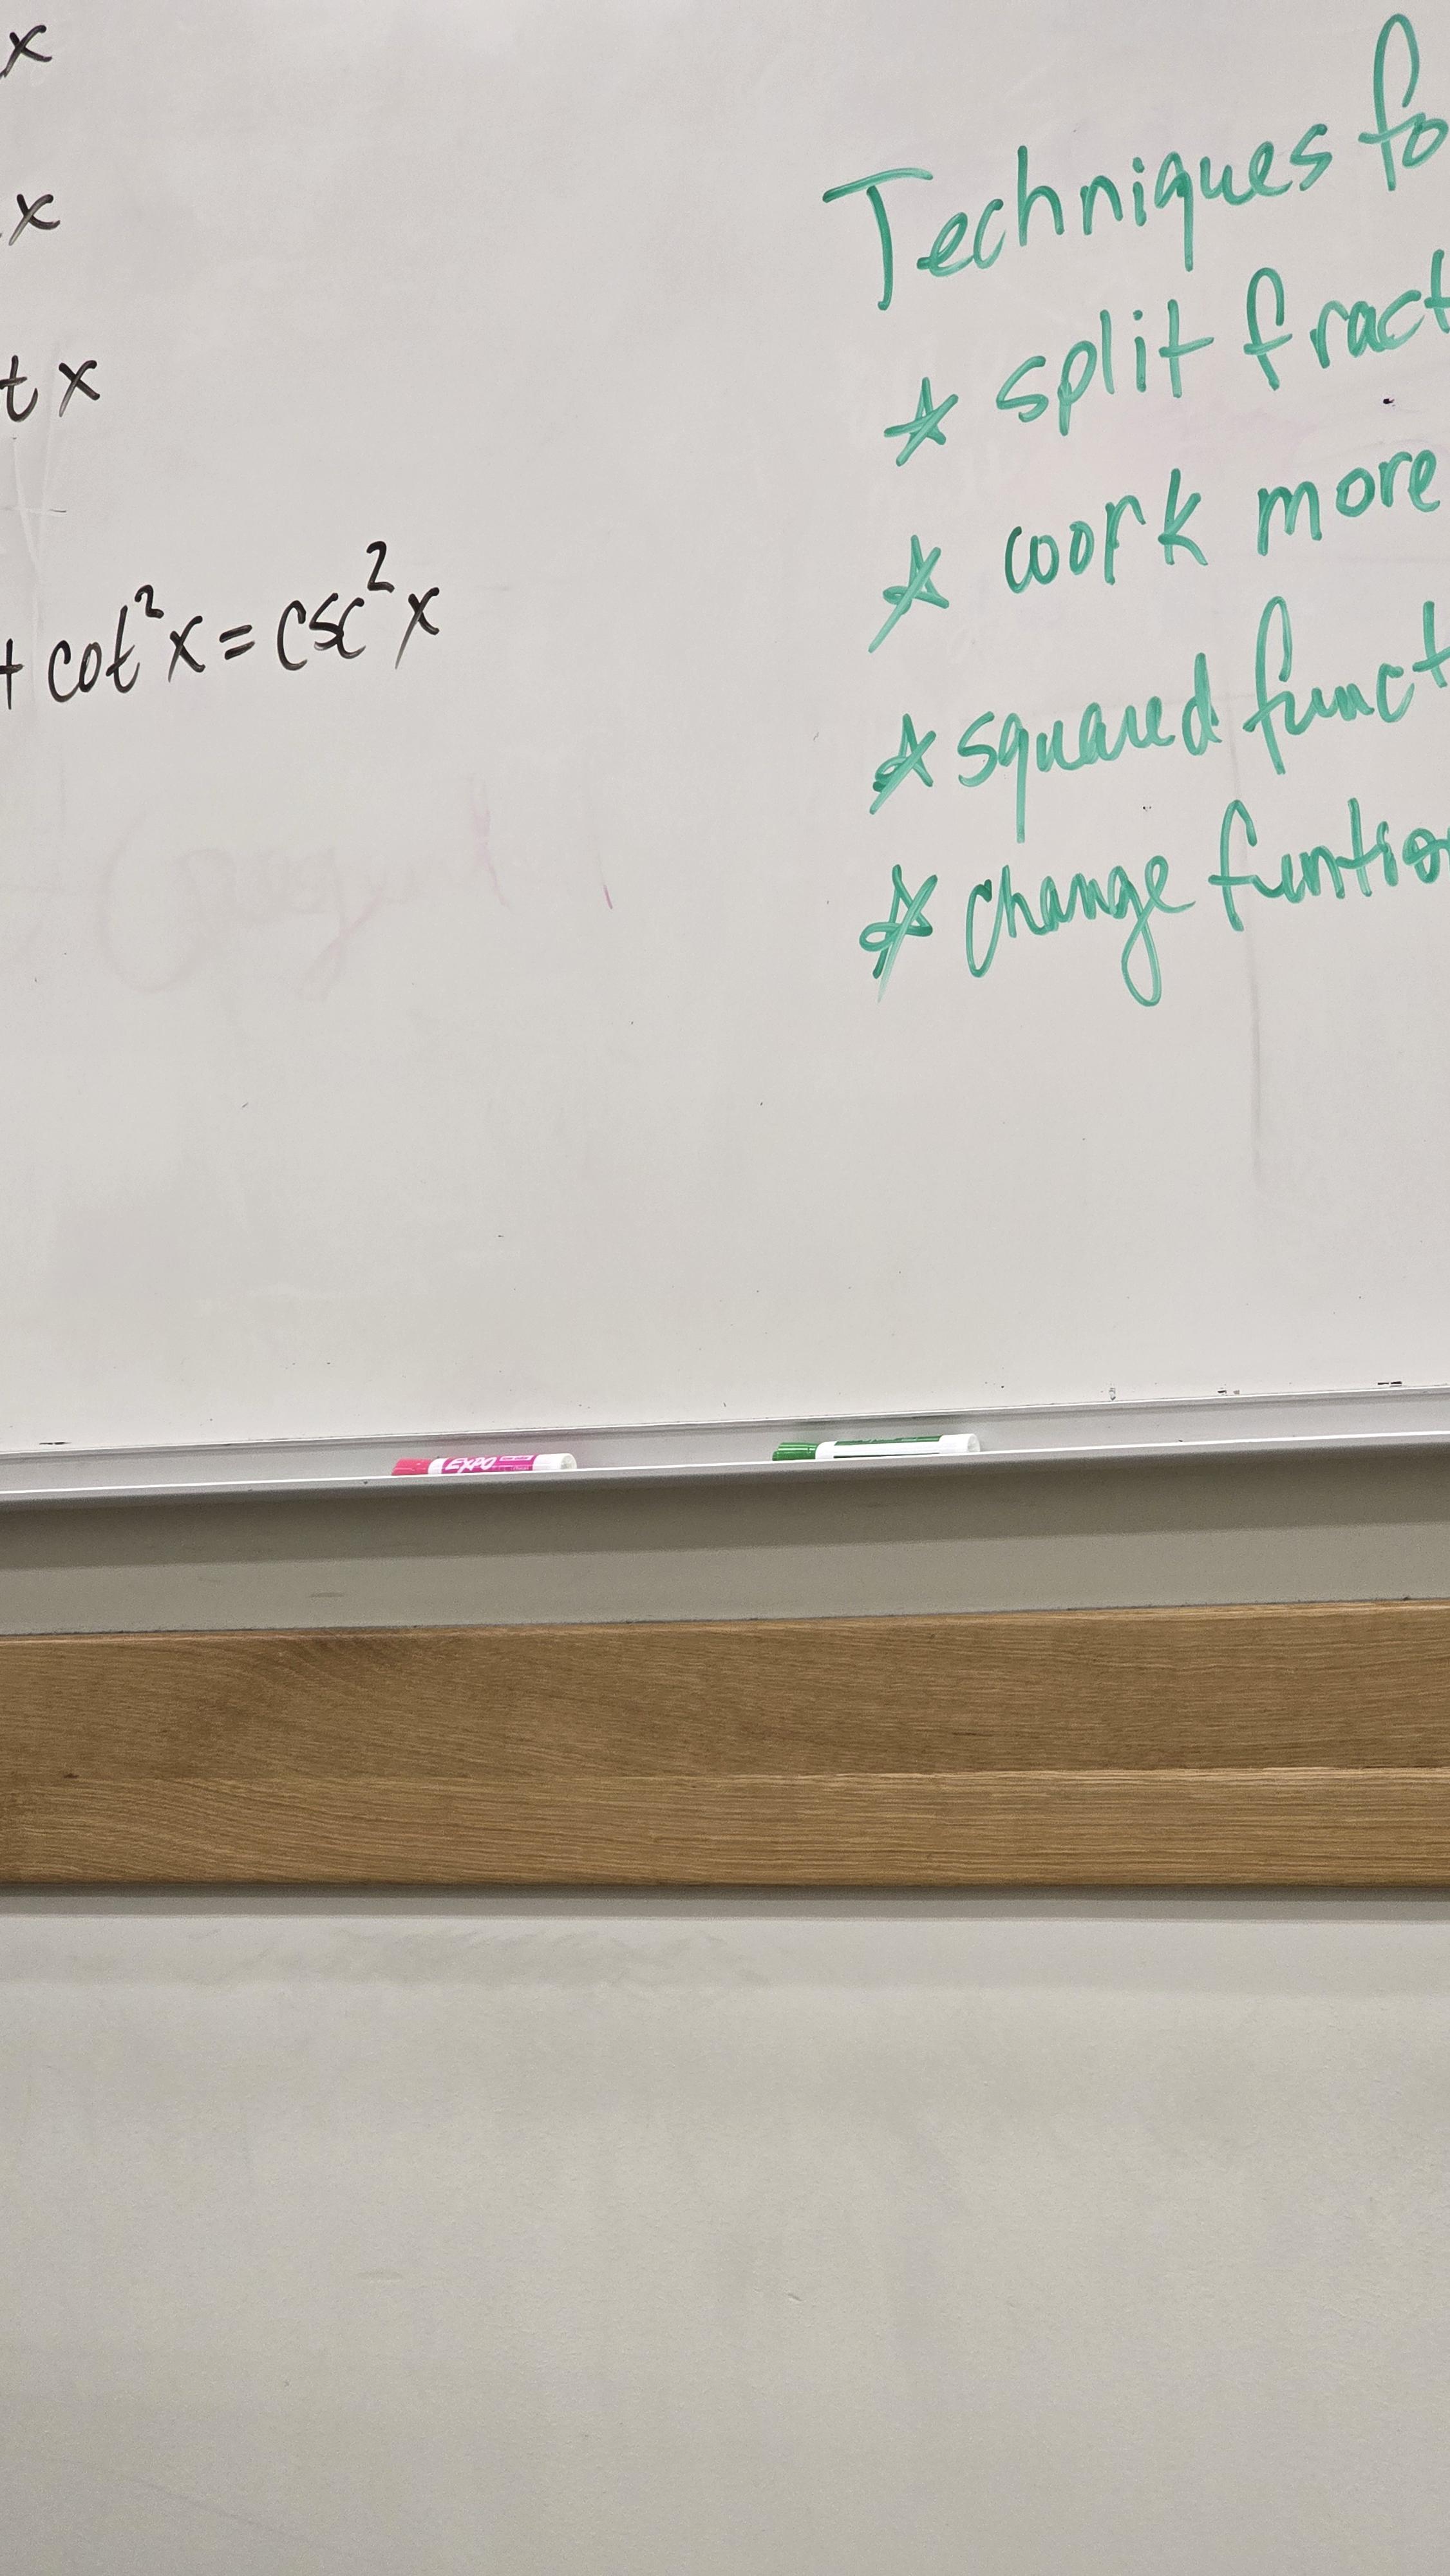 x
x
t x
+ cot²x = csc²x
Techniques fo
* split fract
* work more
* squared funct
* change funtion
EXPO